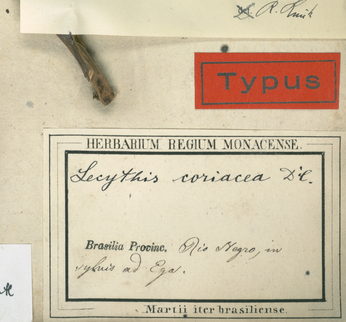 R.
Typus
HERBARIUM REGIUM MONACENSE.
Lecythis coriacea DC.
Brasilia Provinc. Rio Negro, in
sylvis ad Ega.
Martii iter brasiliense.